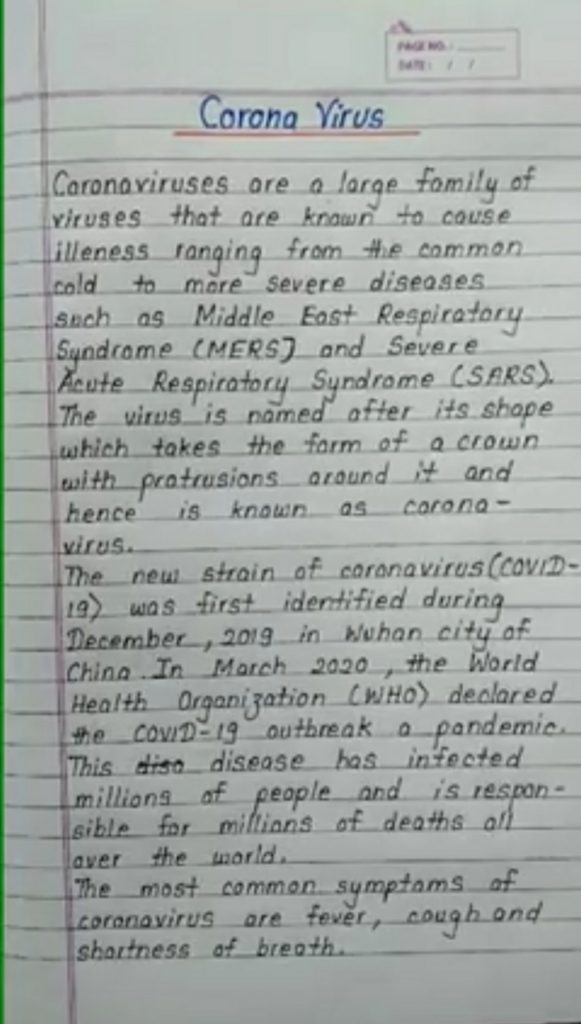 PAGE NO.:
DATE: / /
Corona Virus
Coronaviruses are a large family of
viruses that are known to cause
illeness ranging from the common
cold to more severe diseases
such as Middle East Respiratory
Syndrome (MERS) and Severe
Acute Respiratory Syndrome (SARS).
The virus is named after its shape
which takes the form of a crown
with protrusions around it and
hence is known as corona-
virus.
The new strain of coronavirus (COVID-
19) was first identified during
December, 2019 in Wuhan city of
China. In March 2020, the World
Health Organization (WHO) declared
the COVID-19 outbreak a pandemic.
This disea disease has infected
millions of people and is respon-
sible for millions of deaths all
over the world.
The most common symptoms of
coronavirus are fever, cough and
shortness of breath.